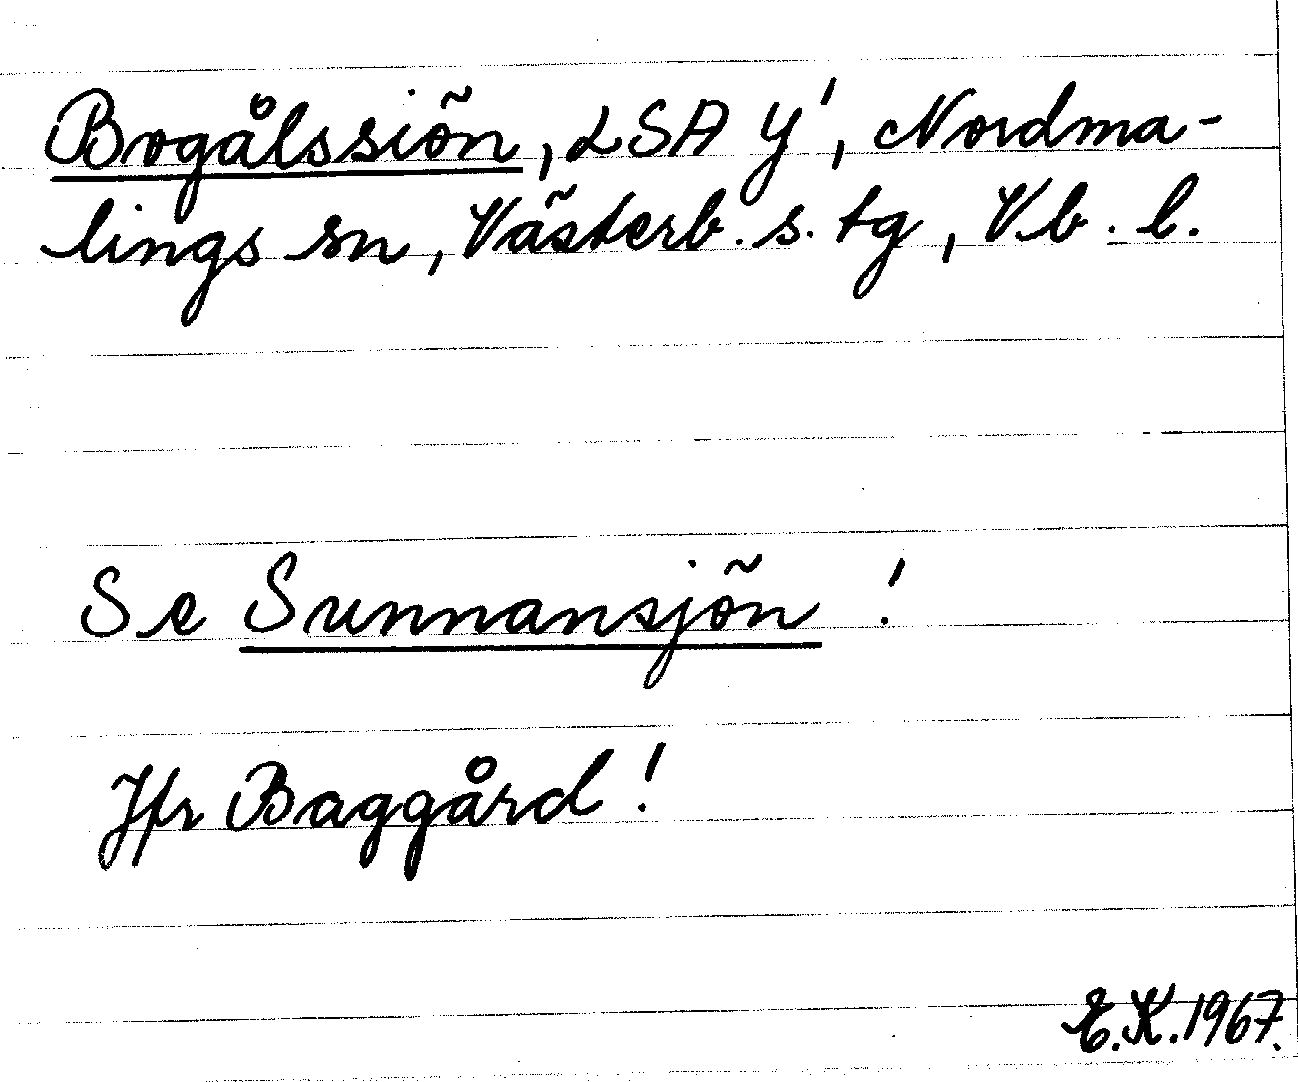 Bogålssiön, LSA Y', Nordma-
lings sn, Västerb. s. tg, Vb. l.
Se Sunnansjön!
Jfr Baggård!
E.K. 1967.